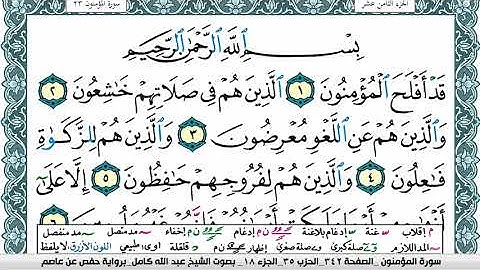 الجزء الثامن عشر سورة المؤمنون ٢٣
بِسْمِ ٱللَّهِ ٱلرَّحْمَٰنِ ٱلرَّحِيمِ
قَدْ أَفْلَحَ ٱلْمُؤْمِنُونَ ١ ٱلَّذِينَ هُمْ فِى صَلَاتِهِمْ خَٰشِعُونَ ٢
وَٱلَّذِينَ هُمْ عَنِ ٱللَّغْوِ مُعْرِضُونَ ٣ وَٱلَّذِينَ هُمْ لِلزَّكَوٰةِ
فَٰعِلُونَ ٤ وَٱلَّذِينَ هُمْ لِفُرُوجِهِمْ حَٰفِظُونَ ٥ إِلَّا عَلَىٰٓ
م إقلاب غنة إدغام بلاغنة ن م إدغام ن م إخفاء مد متصل مد منفصل
المد اللازم صلة كبرى صلة صغرى إظهار ن م قلقلة طبيعي اللون الأزرق لا يلفظ
سورة المؤمنون _الصفحة ٣٤٢_ الحزب ٣٥_ الجزء ١٨_ بصوت الشيخ عبد الله كامل_برواية حفص عن عاصم